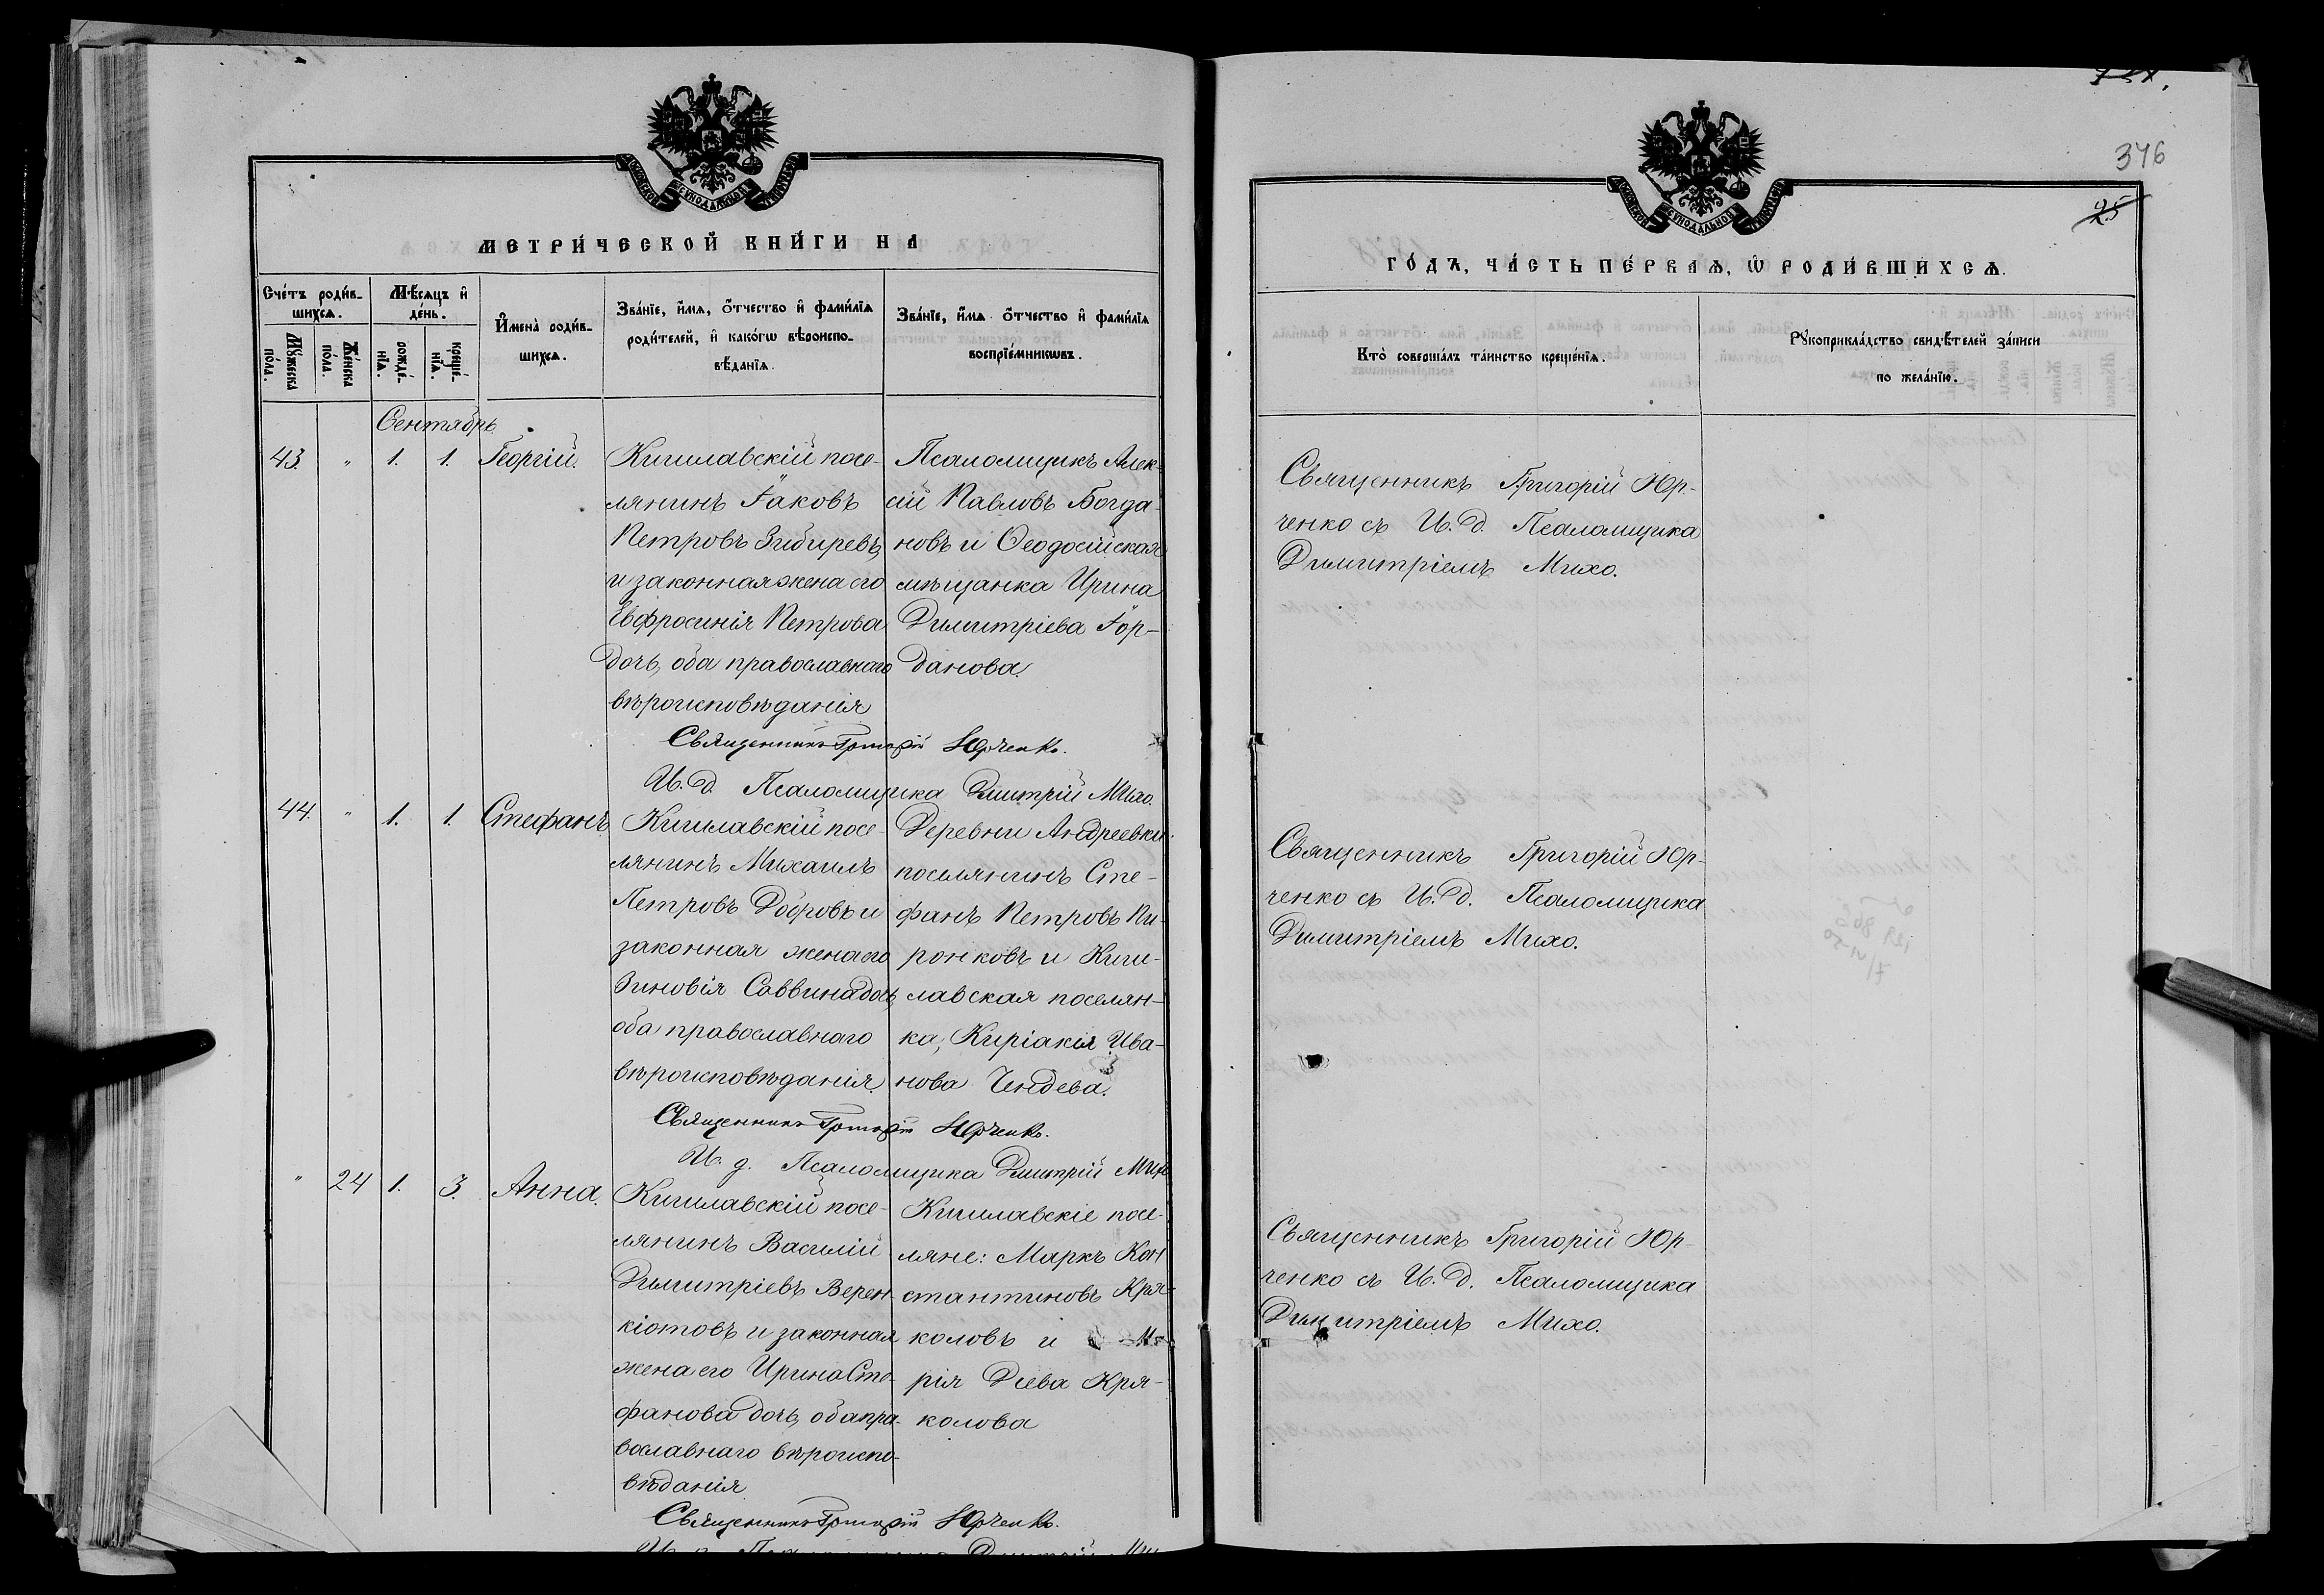 МОСКОВСКОЙ СУНОДАЛЬНОЙ ТИПОГРАФІИ
МЕТРИ́ЧЕСКОЙ КНИ́ГИ НА
Сче́тъ роди́в-
шихсѧ.
Мѣ́сѧцъ и҆
де́нь.
И҆мена̀ роди́в-
шихсѧ.
Зва́нїе, и҆́мѧ, ѻ҆́тчество и҆ фами́лїѧ
роди́телей, и҆ како́гѡ вѣроиспо-
вѣ́данїѧ.
Зва́нїе, и҆́мѧ ѻ҆́тчество и҆ фами́лїѧ
воспрїе́мникѡвъ.
Мꙋ́жеска
по́ла.
Же́нска
по́ла.
рожде́-
нїѧ.
креще́-
нїѧ.
Сентябрь
43. " 1. 1. Георгій.
Кишлавскій посе-
лянинъ Іаковъ
Петровъ Зибиревъ,
и законная жена его
Евфросинія Петрова
дочь, оба православнаго
вѣроисповѣданія
Псаломщикъ Алек-
сій Павловъ Богда-
новъ и Ѳеодосійская
мѣщанка Ирина
Димитріева Іор-
данова.
Священникъ Григорій Юрченко.
И. д. Псаломщика Димитрій Михо.
44. " 1. 1. Стефанъ
Кишлавскій посе-
лянинъ Михаилъ
Петровъ Добровъ и
законная жена его
Зиновія Саввина дочь,
оба православнаго
вѣроисповѣданія.
Деревни Андреевки
поселянинъ Сте-
фанъ Петровъ Пи-
ронковъ и Киш-
лавская поселян-
ка, Киріакія Ива-
нова Чендева.
Священникъ Григорій Юрченко.
И. д. Псаломщика Димитрій Михо
" 24 1. 3. Анна.
Кишлавскій посе-
лянинъ Василій
Димитріевъ Верен-
кіотовъ и законная
жена его Ирина Сте-
фанова дочь, оба пра-
вославнаго вѣроиспо-
вѣданія
Кишлавскіе посе-
ляне: Маркъ Кон
стантиновъ Кря-
коловъ и
рія Дева Кря-
колова
Священникъ Григорій Юрченко.
376
25
МОСКОВСКОЙ СУНОДАЛЬНОЙ ТИПОГРАФІИ
ГО́ДЪ, ЧА́СТЬ ПЕ́РВАѦ, Ѡ҆ РОДИ́ВШИХСѦ.
Кто̀ соверша́лъ та́инство креще́нїѧ.
Рꙋкоприкла́дство свидѣ́телей за́писи
по жела́нїю.
Священникъ Григорій Юр-
ченко съ И. д. Псаломщика
Димитріемъ Михо.
Священникъ Григорій Юр-
ченко съ И. д. Псаломщика
Димитріемъ Михо.
Священникъ Григорій Юр-
ченко съ И. д. Псаломщика
Димитріемъ Михо.